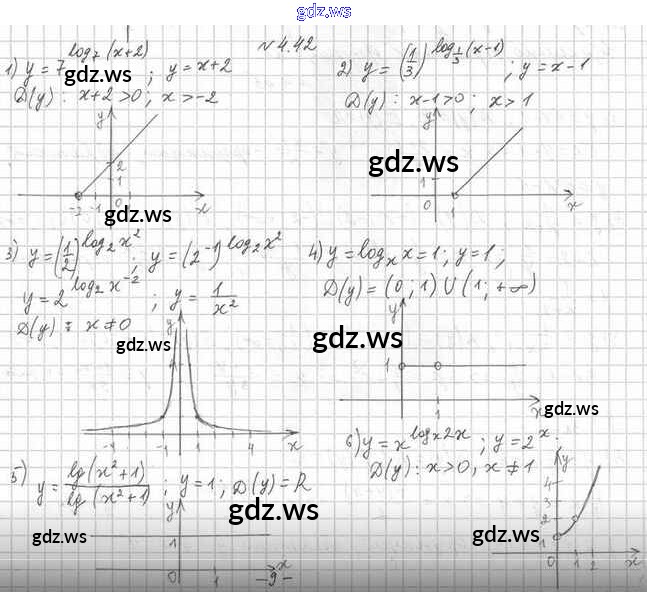 gdz.ws
№ 4.42
1) y = 7^{log_7 (x+2)} ; y = x+2
D(y) : x+2 > 0 ; x > -2
2) y = (1/3)^{log_{1/3} (x-1)} ; y = x-1
D(y) : x-1 > 0 ; x > 1
gdz.ws
y 2 1 -2 -1 0 x
gdz.ws
y 1 0 1 x
gdz.ws
3) y = (1/2)^{log_2 x^2} ; y = (2^{-1})^{log_2 x^2}
y = 2^{log_2 x^{-2}} ; y = 1/x^2
D(y) : x ≠ 0
gdz.ws
4) y = log_x x = 1 ; y = 1 ;
D(y) = (0 ; 1) ∪ (1 ; +∞)
gdz.ws
y -1 1 4 x
y 1 1 x
gdz.ws
5) y = lg(x^2+1)/lg(x^2+1) ; y = 1 ; D(y) = R
gdz.ws
6) y = x^{log_x 2x} ; y = 2^x.
D(y) : x > 0, x ≠ 1
gdz.ws
y 1 0 1 x
gdz.ws
y 4 3 2 1 0 1 2 x
gdz.ws
-9-